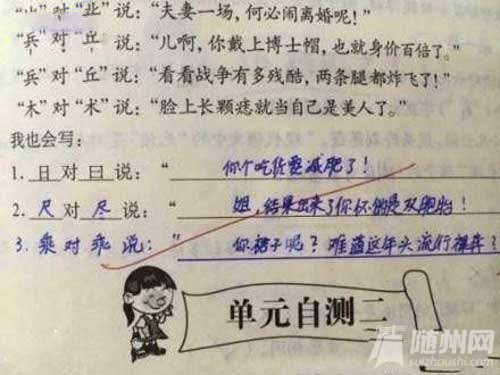 对 说：“夫妻一场，何必闹离婚呢！”
“兵”对“丘”说：“儿啊，你戴上博士帽，也就身价百倍了。”
“兵”对“丘”说：“看看战争有多残酷，两条腿都炸飞了！”
“木”对“术”说：“脸上长颗痣就当自己是美人了。”
我也会写：
1. 对 曰 说：“你个吃货要减肥了！
2. 尺 对 尽 说：“姐，结果出来了你怀的是双胞胎！
3. 乘 对 乖 说：“你裙子呢？难道这年头流行裸奔？
单元自测二
随州网
suizhoushi.com